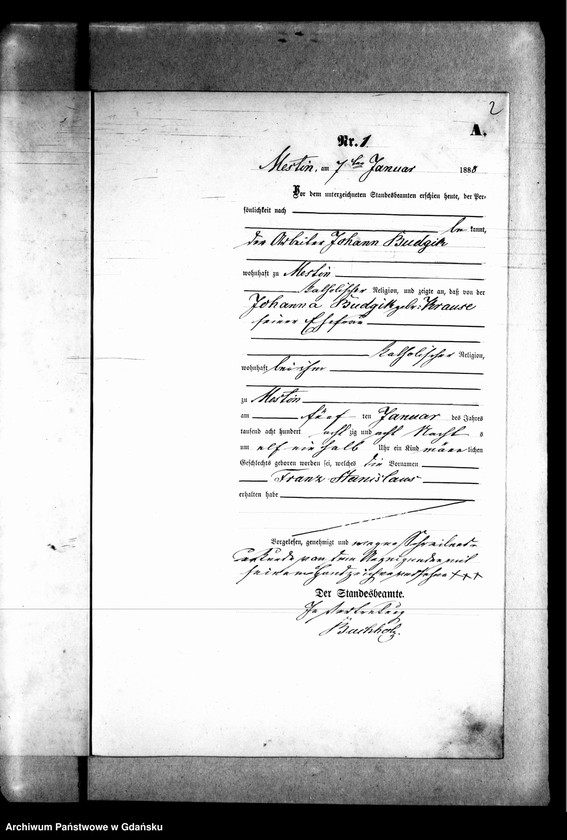 2
A.
Nr. 1
Mestin, am 7ten Januar 1888
Vor dem unterzeichneten Standesbeamten erschien heute, der Per-
sönlichkeit nach
be kannt,
der Arbeiter Johann Budzik
wohnhaft zu Mestin
katholischer Religion, und zeigte an, daß von der
Johanna Budzik geb: Krause
seiner Ehefrau
katholischer Religion,
wohnhaft bei ihm
zu Mestin
am fünf ten Januar des Jahres
tausend acht hundert acht zig und acht Nachts
um elf ein halb Uhr ein Kind männ lichen
Geschlechts geboren worden sei, welches die Vornamen
Franz Stanislaus
erhalten habe
Vorgelesen, genehmigt und wegen Schreibens-
unkunde von dem Anzeigenden mit
seinem Handzeichen versehen +++
Der Standesbeamte.
In Vertretung
Buchholz.
Archiwum Państwowe w Gdańsku